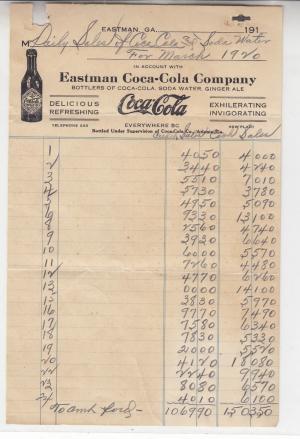 EASTMAN, GA., 191
M Daily Sales of Coca Cola & Soda Water
For March 1920
IN ACCOUNT WITH
Eastman Coca-Cola Company
BOTTLERS OF COCA-COLA, SODA WATER, GINGER ALE
DELICIOUS REFRESHING Coca-Cola EXHILERATING INVIGORATING
TELEPHONE EVERYWHERE 5C
Bottled Under Supervision of Coca-Cola Co., Atlanta, Ga.
Sales Cash Sales
1 4050 4000
2 3440 4240
3 5510 7010
4 5730 3780
5 4950 5090
9330 13100
2560 4740
3920 6640
10 6000 5570
11 7260 4480
12 4770 6260
13 0000 14100
15 3830 5970
16 9770 7490
17 7580 6340
18 7830 5330
19 21000 5520
20 4120 18080
22 2240 9940
23 8080 6570
24 4010 6100
To amt ford— 106990 150350